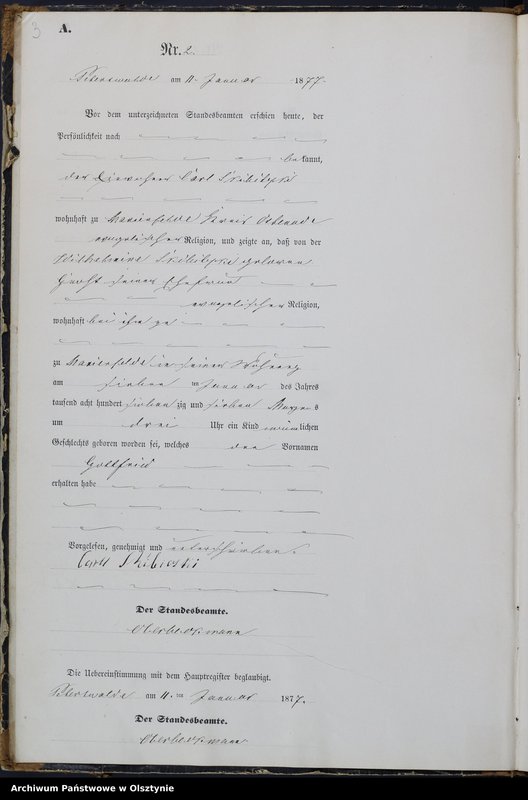 3
A.
Nr. 2.
Peterswalde am 11. Januar 1877.
Vor dem unterzeichneten Standesbeamten erschien heute, der
Persönlichkeit nach
bekannt,
der Einwohner Carl
wohnhaft zu Marienfelde Kreis Osterode
evangelischer Religion, und zeigte an, daß von der
Wilhelmine geborenen
seiner Ehefrau
evangelischer Religion,
wohnhaft bei ihm
zu Marienfelde in seiner Wohnung
am sieben ten Januar des Jahres
tausend acht hundert siebenzig und sieben Morgens
um drei Uhr ein Kind männlichen
Geschlechts geboren worden sei, welches den Vornamen
Gottfried
erhalten habe
Vorgelesen, genehmigt und unterschrieben.
Carl
Der Standesbeamte.
Die Uebereinstimmung mit dem Hauptregister beglaubigt.
Peterswalde am 11. ten Januar 1877.
Der Standesbeamte.
Archiwum Państwowe w Olsztynie